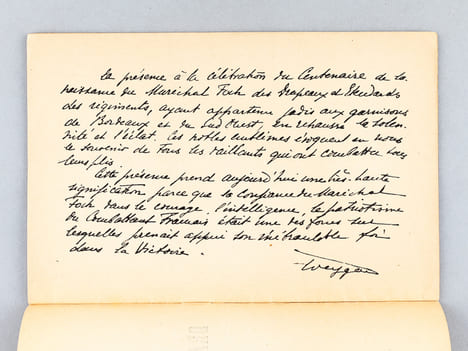 La présence à la célébration du Centenaire de la
naissance du Maréchal Foch des Drapeaux et Etendards
des régiments, ayant appartenu jadis aux garnisons
de Bordeaux et du Sud Ouest, en rehausse la solen-
nité et l'éclat. Ces nobles emblèmes évoquent en nous
le souvenir de tous les vaillants qui ont combattu sous
leurs plis.
Cette présence prend aujourd'hui une très haute
signification parce que la confiance du Maréchal
Foch dans le courage, l'intelligence, le patriotisme
du Combattant Français était une des forces sur
lesquelles prenait appui son inébranlable foi
dans la Victoire.
Weygand